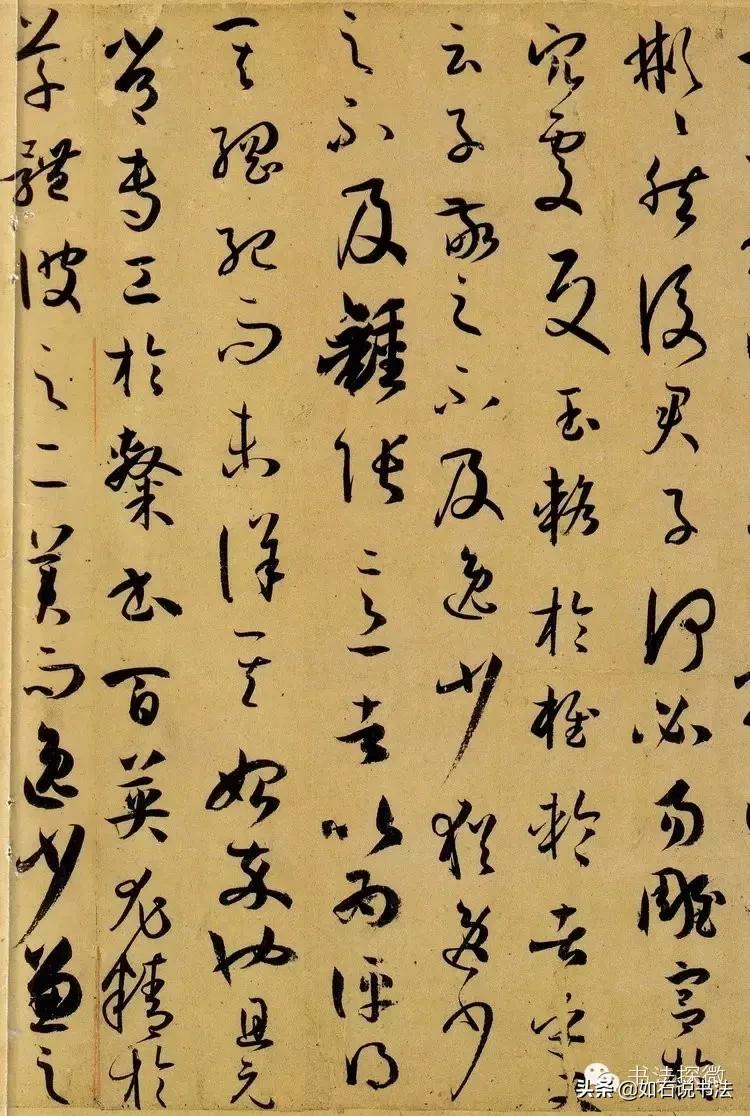 彬々然後君子何必易雕宮於
穴處反玉輅於椎輪者乎又
云子敬之不及逸少猶逸少
之不及鍾張意者以為評得
其綱紀而未詳其始卒也且元
常專工於隸書百英尤精於
草體彼之二美而逸少兼之
书法探微
头条@如石说书法